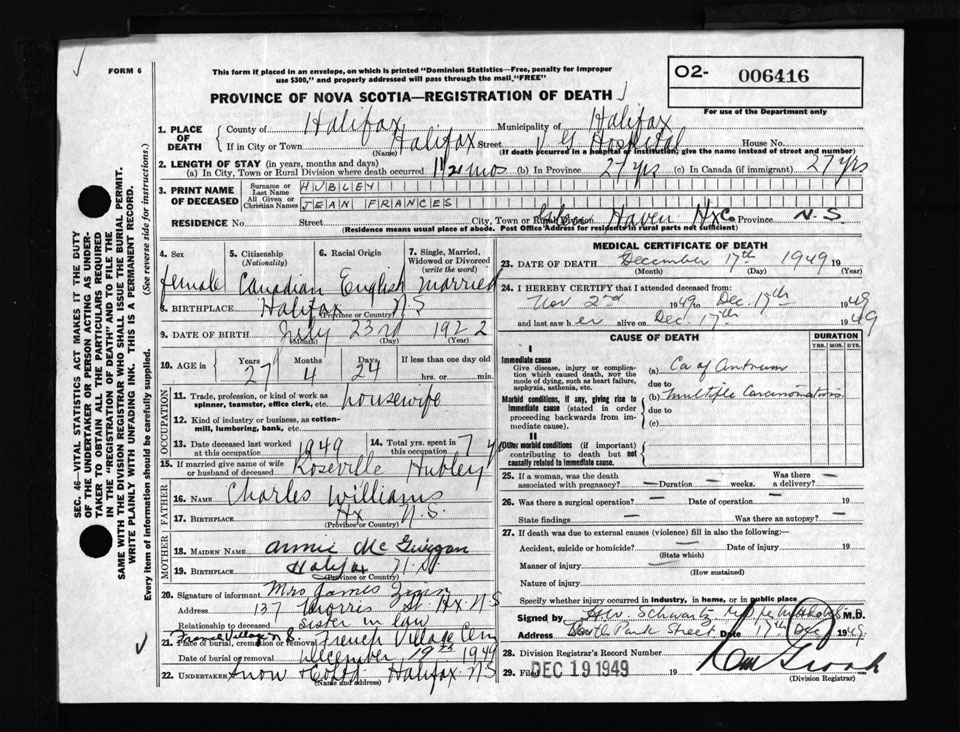 FORM 6
This form if placed in an envelope, on which is printed "Dominion Statistics—Free, penalty for improper
use $300," and properly addressed will pass through the mail, "FREE"
O2- 006416
PROVINCE OF NOVA SCOTIA—REGISTRATION OF DEATH
For use of the Department only
SEC. 46—VITAL STATISTICS ACT MAKES IT THE DUTY
OF THE UNDERTAKER OR PERSON ACTING AS UNDER-
TAKER TO OBTAIN ALL THE PARTICULARS REQUIRED
IN THE "REGISTRATION OF DEATH" AND TO FILE THE
SAME WITH THE DIVISION REGISTRAR WHO SHALL ISSUE THE BURIAL PERMIT.
WRITE PLAINLY WITH UNFADING INK. THIS IS A PERMANENT RECORD.
Every item of information should be carefully supplied. (See reverse side for instructions.)
1. PLACE OF DEATH
County of Halifax Municipality of Halifax
If in City or Town Halifax Street V G Hospital House No.
(Name) (If death occurred in a hospital or institution, give the name instead of street and number)
2. LENGTH OF STAY (in years, months and days)
(a) In City, Town or Rural Division where death occurred mos (b) In Province 27 yrs (c) In Canada (if immigrant) 27 yrs
3. PRINT NAME OF DECEASED
Surname or Last Name HUBLEY
All Given or Christian Names JEAN FRANCES
RESIDENCE No. Street City, Town or Rural Division Haven Hx Co. Province N.S.
(Residence means usual place of abode. Post Office Address for residents in rural parts not sufficient)
4. Sex 5. Citizenship (Nationality) 6. Racial Origin 7. Single, Married, Widowed or Divorced (write the word)
female Canadian English married
8. BIRTHPLACE Halifax N S
(Province or Country)
9. DATE OF BIRTH July 23rd 1922
(Month) (Day) (Year)
10. AGE in Years Months Days If less than one day old
27 4 24 hrs. or min.
OCCUPATION
11. Trade, profession, or kind of work as spinner, teamster, office clerk, etc. housewife
12. Kind of industry or business, as cotton-mill, lumbering, bank, etc.
13. Date deceased last worked at this occupation 1949 14. Total yrs. spent in this occupation 7 yrs
15. If married give name of wife or husband of deceased Roseville Hubley
FATHER
16. NAME Charles Williams
17. BIRTHPLACE Hx N.S.
(Province or Country)
MOTHER
18. MAIDEN NAME Annie McGuigan
19. BIRTHPLACE Halifax N.S.
(Province or Country)
20. Signature of informant Mrs James
Address 137 Morris St. Hx. N S
Relationship to deceased sister in law
21. Place of burial, cremation or removal French Village N S. French Village Cem
Date of burial or removal December 19th 1949
22. UNDERTAKER Snow & Co Ltd Halifax N S
(Name and address)
MEDICAL CERTIFICATE OF DEATH
23. DATE OF DEATH December 17th 1949 19
(Month) (Day) (Year)
24. I HEREBY CERTIFY that I attended deceased from:
Nov 2nd 1949 to Dec. 17th 1949
and last saw her alive on Dec. 17th 1949
CAUSE OF DEATH DURATION
YRS. MOS. DYS.
I
Immediate cause
Give disease, injury or complication which caused death, NOT the mode of dying, such as heart failure, asphyxia, asthenia, etc.
(a) Ca of Antrum
due to
Morbid conditions, if any, giving rise to immediate cause (stated in order proceeding backwards from immediate cause).
(b) multiple carcinomatosis
due to
(c)
II
Other morbid conditions (if important) contributing to death but not causally related to immediate cause.
25. If a woman, was the death associated with pregnancy? — Duration — weeks. Was there a delivery? —
26. Was there a surgical operation? — Date of operation — 19
State findings — Was there an autopsy? —
27. If death was due to external causes (violence) fill in also the following:—
Accident, suicide or homicide? — Date of injury 19
(State which)
Manner of injury
(How sustained)
Nature of injury
Specify whether injury occurred in industry, in home, or in public place
Signed by Schwartz M.D.
Address South Park Street Date 17th Dec 1949
28. Division Registrar's Record Number
29. Filed DEC 19 1949 19
(Division Registrar)